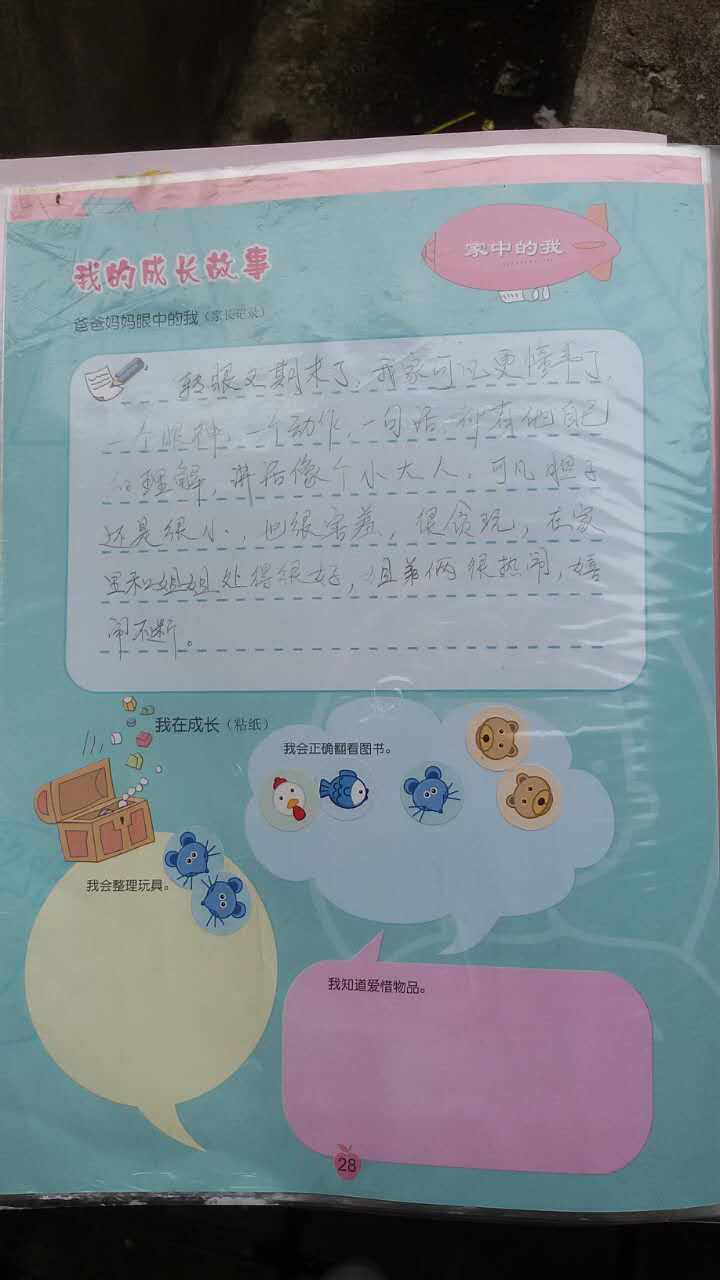 我的成长故事
家中的我
爸爸妈妈眼中的我（家长记录）
转眼又期末了，我家可凡更懂事了，
一个眼神，一个动作，一句话，都有他自己
的理解，讲话像个小大人，可凡胆子
还是很小，也很害羞，很贪玩，在家
里和姐姐处得很好，姐弟俩很热闹，嬉
闹不断。
我在成长（粘纸）
我会正确翻看图书。
我会整理玩具。
我知道爱惜物品。
28